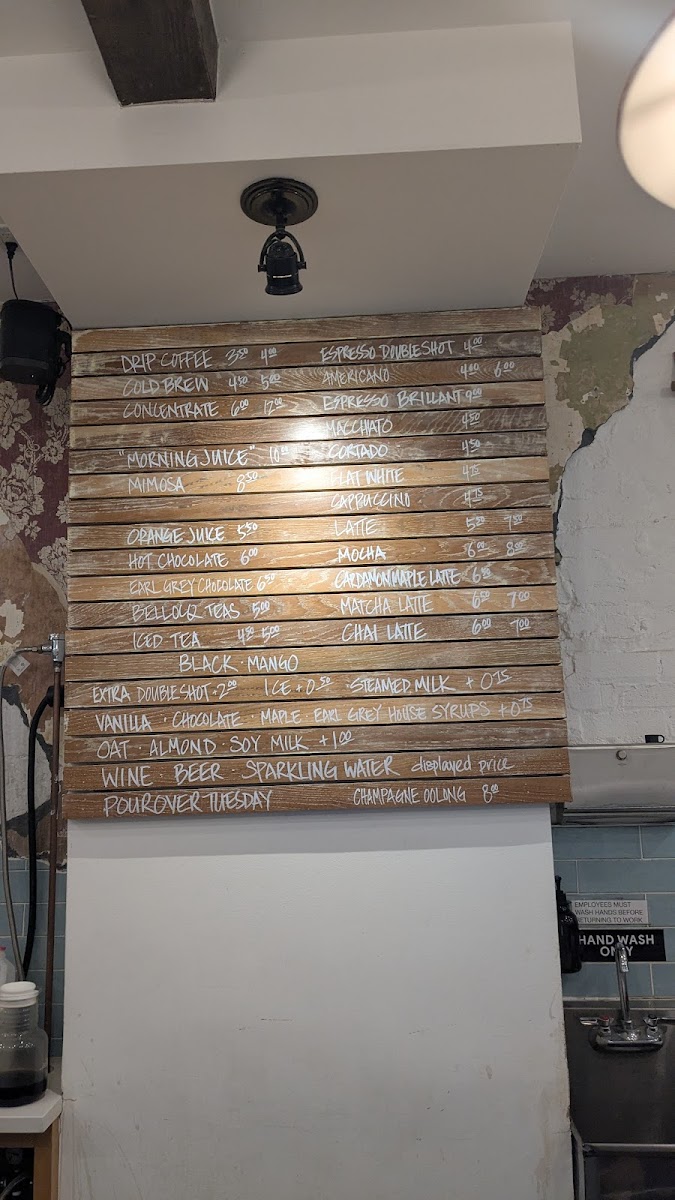 DRIP COFFEE 3.50 4.00 ESPRESSO DOUBLESHOT 4.00
COLD BREW 4.50 5.00 AMERICANO 4.00 6.00
CONCENTRATE 6.00 12.00 ESPRESSO BRILLANT 9.00
MACCHIATO 4.50
"MORNING JUICE" 10.00 CORTADO 4.50
MIMOSA 8.50 FLAT WHITE 4.75
CAPPUCCINO 4.75
ORANGE JUICE 5.50 LATTE 5.50 7.50
HOT CHOCOLATE 6.00 MOCHA 6.00 8.00
EARL GREY CHOCOLATE 6.50 CARDAMOM MAPLE LATTE
BELLOCQ TEAS 5.00 MATCHA LATTE 6.50 7.00
ICED TEA 4.50 5.00 CHAI LATTE 6.00 7.00
BLACK · MANGO
EXTRA DOUBLESHOT · 2.00 ICE + 0.50 · STEAMED MILK + 0.75
VANILLA · CHOCOLATE · MAPLE · EARL GREY HOUSE SYRUPS + 0.75
OAT · ALMOND · SOY MILK + 1.00
WINE BEER · SPARKLING WATER displayed price
POUROVER TUESDAY CHAMPAGNE OOLONG 8.00
EMPLOYEES MUST
WASH HANDS BEFORE
RETURNING TO WORK
HAND WASH
ONLY